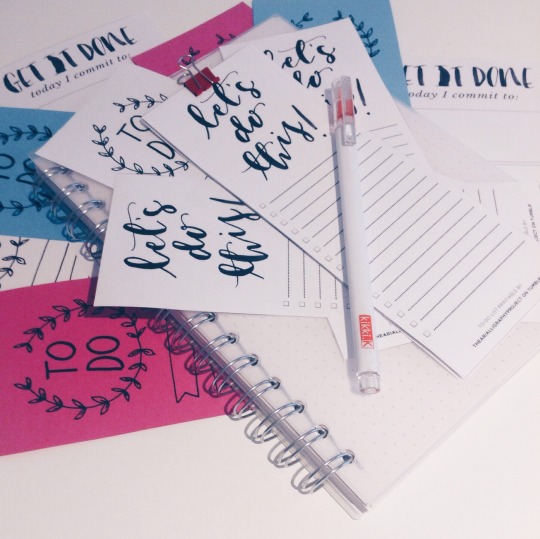 GET IT DONE
today I commit to:
GET IT DONE
today I commit to:
let's
do
let's
do
this!
TO
DO
TO
DO
let's
do
this!
TO
DO
kikki.K
TO DO LIST PRINTABLE BY
THEABIALLIGRAPHYPROJECT ON TUMBLR